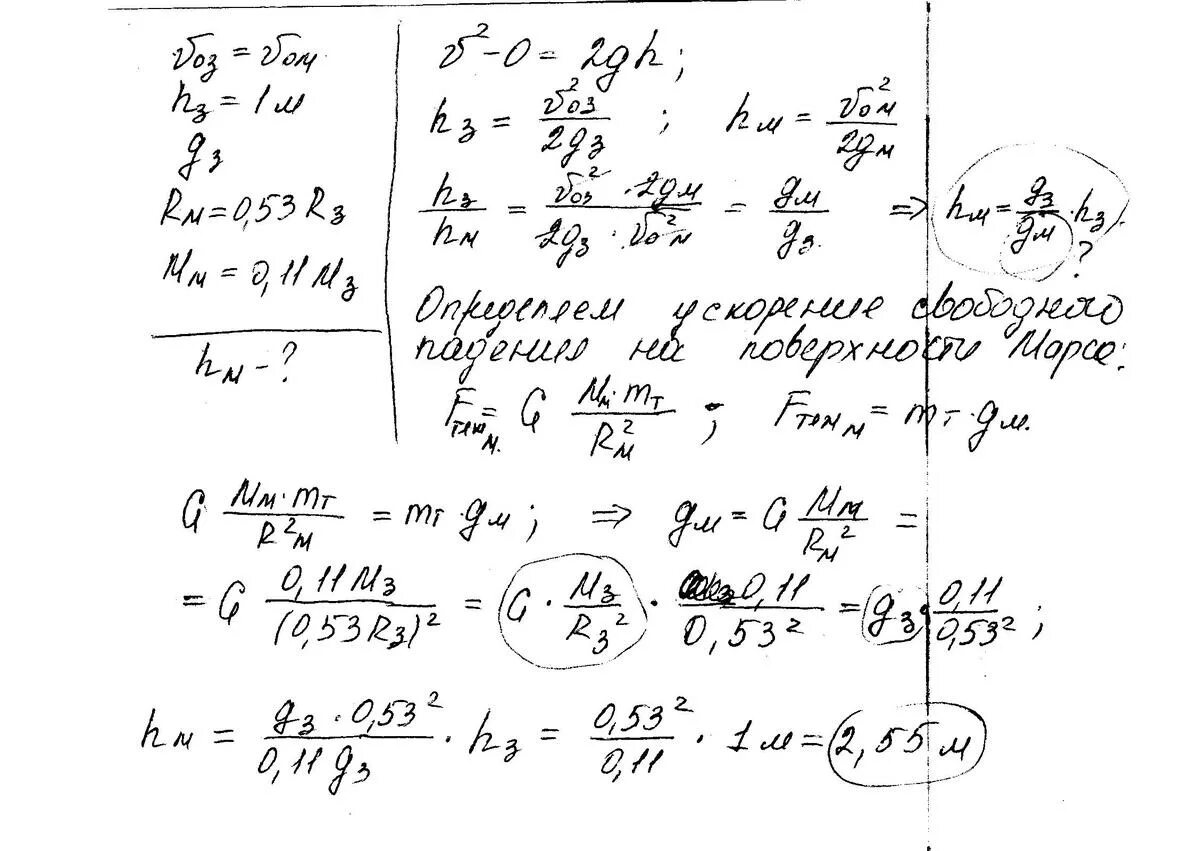 v₀з = v₀м
hз = 1 м
gз
Rм = 0,53 Rз
Mм = 0,11 Mз
hм - ?
v² - 0 = 2gh;
hз = v₀з² / 2gз ; hм = v₀м² / 2gм
hз / hм = v₀з² · 2gм / 2gз · v₀м² = gм / gз ⇒ hм = gз / gм · hз). ?
Определяем ускорение свободного
падения на поверхности Марса:
Fтяж м. = G Mм · mт / Rм² ; Fтяж м = mт · gм.
G Mм · mт / R²м = mт · gм ; ⇒ gм = G Mм / Rм² =
= G 0,11 Mз / (0,53 Rз)² = G · Mз / Rз² · 0,11 / 0,53² = gз · 0,11 / 0,53² ;
hм = gз · 0,53² / 0,11 gз · hз = 0,53² / 0,11 · 1 м = 2,55 м